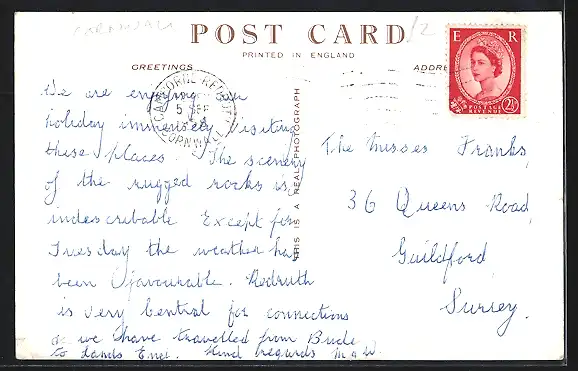 CORNWALL
/2
POST CARD
PRINTED IN ENGLAND
GREETINGS
ADDRE
E R
POSTAGE
REVENUE
2½
CAMBORNE-REDRUTH
5 SEP
CORNWALL
THIS IS A REAL PHOTOGRAPH
We are enjoying our
holiday immensely visiting
these places. The scenery
of the rugged rocks is
indescribable. Except for
Tuesday the weather has
been favourable. Redruth
is very Central for connections
& we have travelled from Bude
to Lands End. Kind regards M & W.
The Misses Franks,
36 Queens Road,
Guildford,
Surrey.